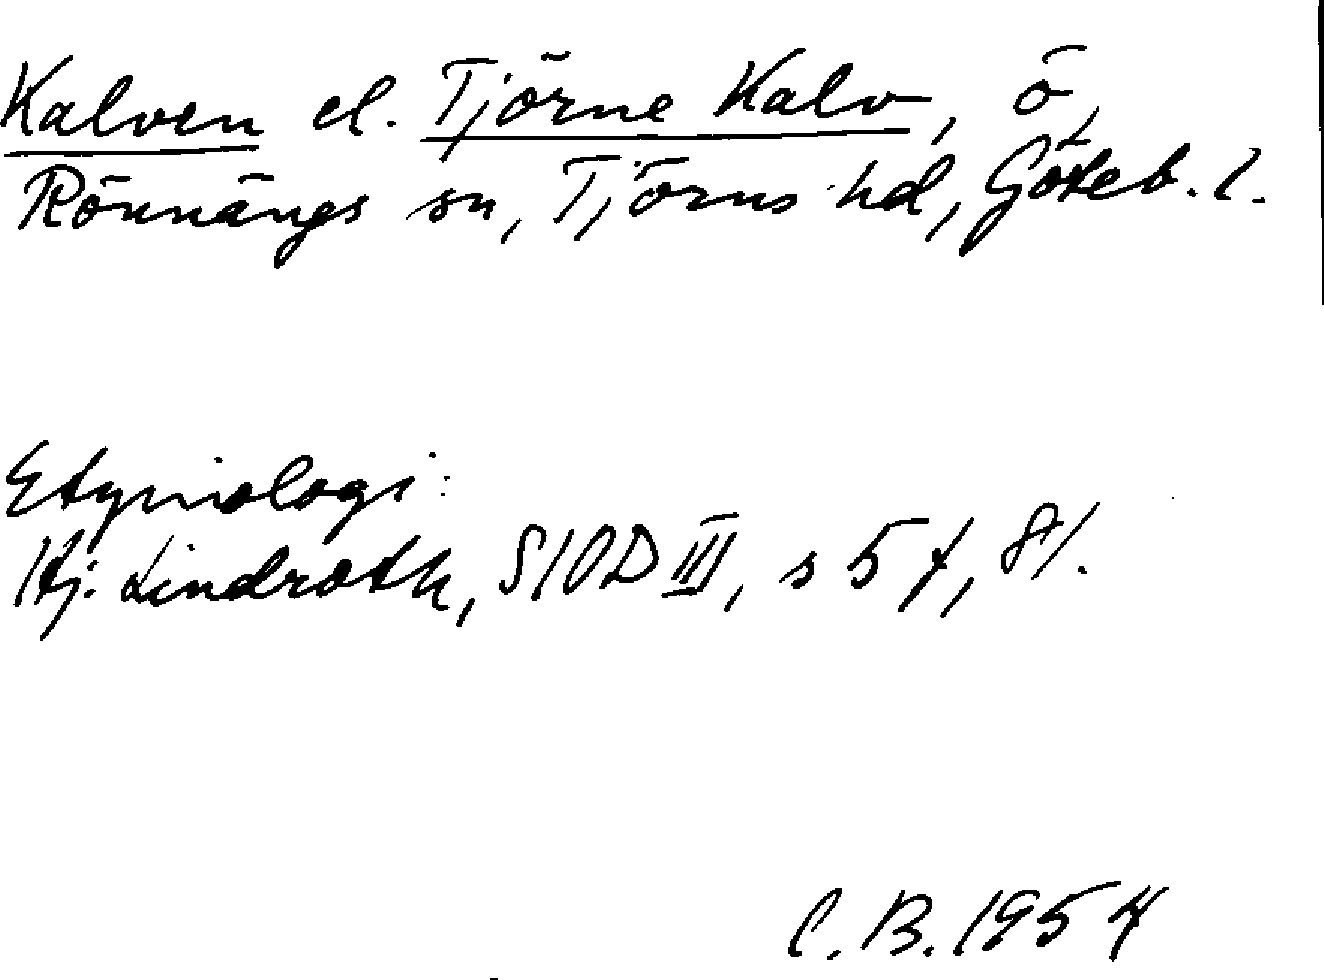 Kalven el. Tjörne Kalv, ö,
Rönnängs sn, Tjörns hd, Göteb. l.
Etymologi:
Hj. Lindroth, SIOD III, s 5 f, 81.
C. B. 1954